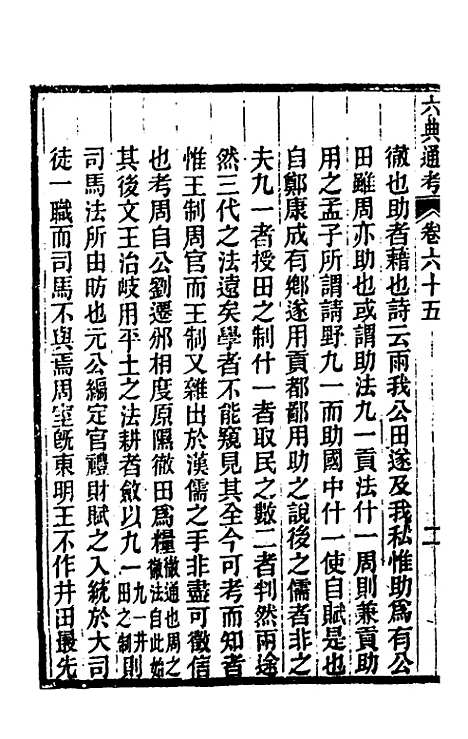 六典通考 卷六十五 十一
徹也助者藉也詩云雨我公田遂及我私惟助爲有公
田雖周亦助也或謂助法九一貢法什一周則兼貢助
用之孟子所謂請野九一而助國中什一使自賦是也
自鄭康成有鄉遂用貢都鄙用助之說後之儒者非之
夫九一者授田之制什一者取民之數二者判然兩途
然三代之法遠矣學者不能窺見其全今可考而知者
惟王制周官而王制又雜出於漢儒之手非盡可徵信
也考周自公劉遷邠相度原隰徹田爲糧徹通也周之徹法自此始
其後文王治岐用平土之法耕者斂以九一九一井則一田之制
司馬法所由昉也元公編定官禮財賦之入統於大司
徒一職而司馬不與焉周室旣東明王不作井田最先